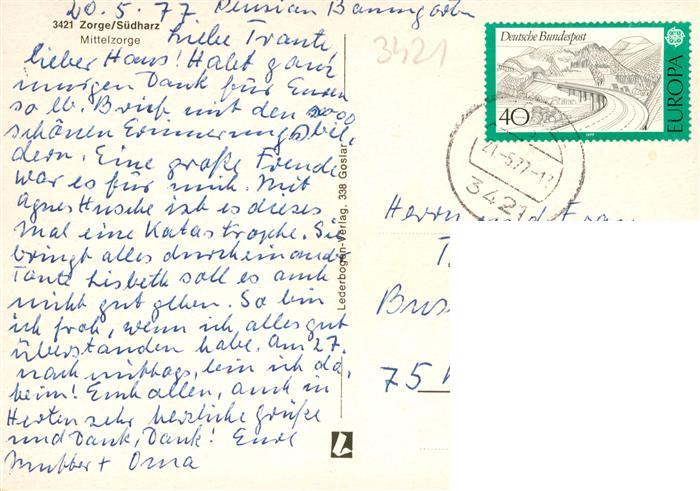 20.5.77 Pension Baumgarten
3421 Zorge/Südharz
Mittelzorge
Liebe Traute,
lieber Hans! Habt ganz
innigen Dank für Euren
so lb. Brief mit den sooo
schönen Erinnerungsbil-
dern. Eine große Freude
war es für mich. Mit
Agnes Husche ist es dieses
Mal eine Katastrophe. Sie
bringt alles durcheinander
Tante Lisbeth soll es auch
nicht gut gehen. So bin
ich froh, wenn ich alles gut
überstanden habe. Am 27.
nachmittags, bin ich da,
heim! Euch allen, auch in
Herten sehr herzliche Grüße
und Dank, Dank! Eure
Mutter + Oma
Lederbogen-Verlag. 338 Goslar
3421
Deutsche Bundespost
40
1977
EUROPA
21.-5.77-12
3421
Herrn und Frau
75